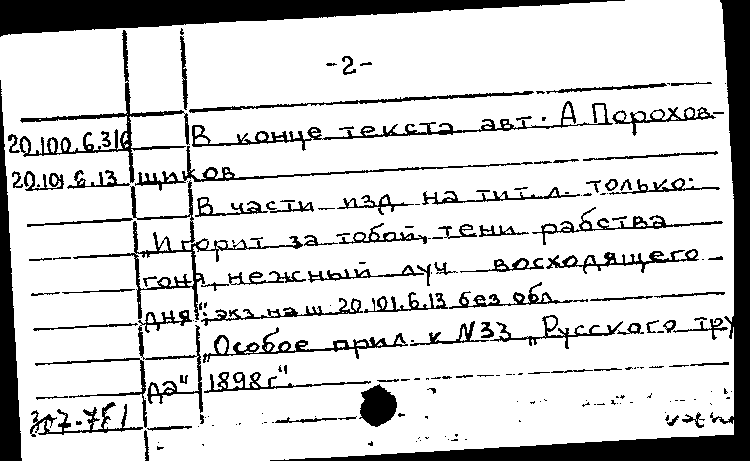 -2-
20.100.6.316 В конце текста авт. А Порохов-
20.101.6.13 щиков
В части изд. на тит. л. только:
„И горит за тобой, тени рабства
гоня, нежный луч восходящего
дня“; экз. на ш. 20.101.6.13 без обл.
„Особое прил. к N33 „Русского тру
да“ 1898г“.